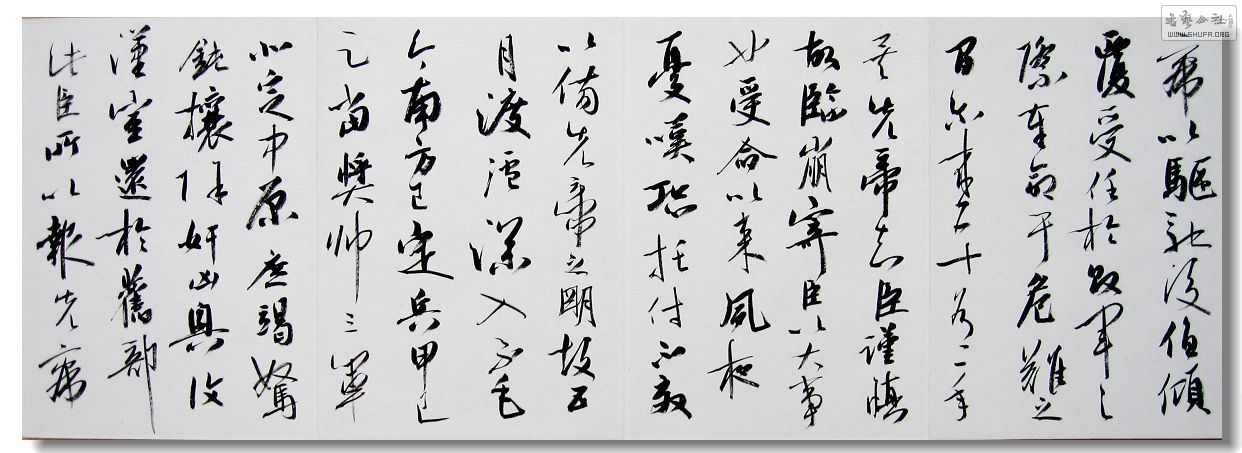 帝以驅馳後值傾
覆受任於敗軍之
際奉命于危難之
間尔來二十有一年
矣先帝知臣謹慎
故臨崩寄臣以大事
也受命以來夙夜
憂嘆恐托付不效
以傷先帝之明故五
月渡瀘深入不毛
今南方已定兵甲已
足當獎帥三軍
北定中原庶竭駑
鈍攘除奸凶興復
漢室還於舊都
此臣所以報先帝
書藝公社
WWW.SHUFA.ORG